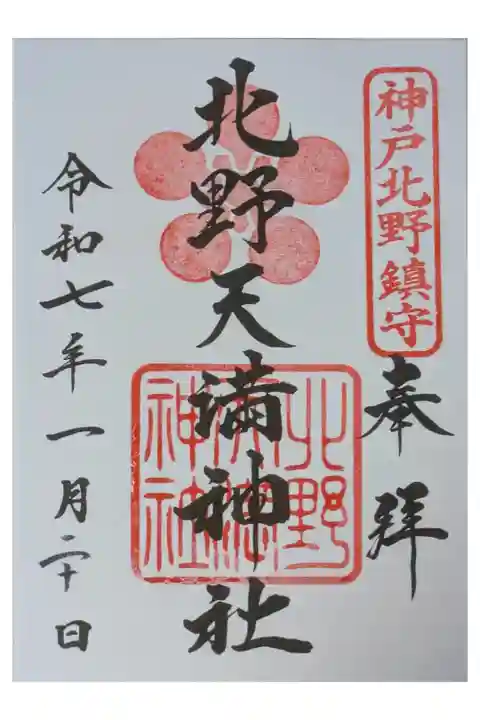 神戸北野鎮守
奉拜
北野天満神社
北野天満神社
令和七年一月二十日